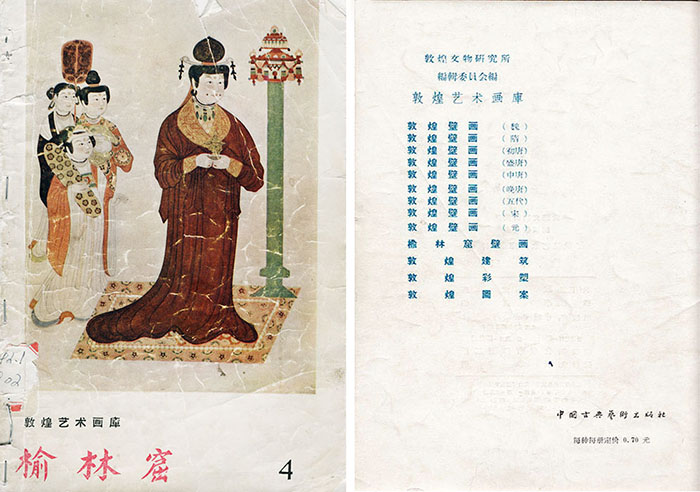 敦煌艺术画库
榆林窟
4
敦煌文物研究所
編輯委員会編
敦煌艺术画庫
敦煌壁画（魏）
敦煌壁画（隋）
敦煌壁画（初唐）
敦煌壁画（盛唐）
敦煌壁画（中唐）
敦煌壁画（晚唐）
敦煌壁画（五代）
敦煌壁画（宋）
敦煌壁画（元）
榆林窟壁画
敦煌建筑
敦煌彩塑
敦煌圖案
中国古典藝術出版社
每种每册定价 0.70 元